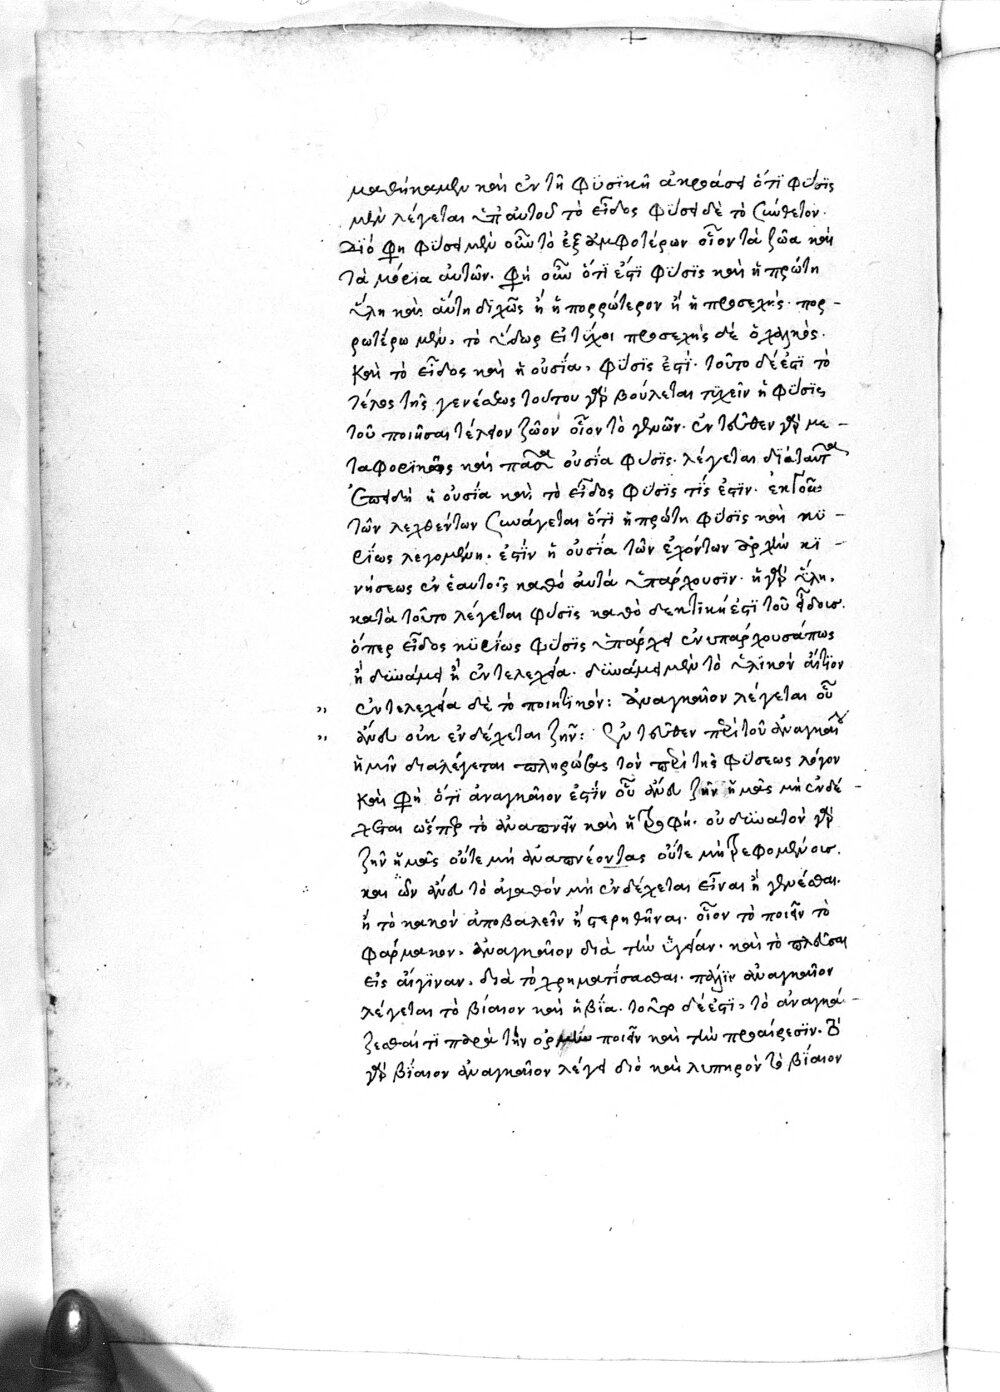 μαθήκαμεν καὶ ἐν τῆ φϋσϊκῆ ἀκροάσει ὅτϊ φϋσϊς
μὲν λέγεται ὑπ' αὐτοῦ τὸ εἶδος φϋσει δὲ τὸ σύνθετον·
Διό φη φϋσει μὲν οὖν τὸ ἐξ ἀμφοτέρων οἷον τὰ ζῶα καὶ
τὰ μόρϊα αὐτῶν. φη οὖν ὅτϊ ἐστὶ φϋσϊς καὶ ἡ πρώτη
ὕλη καὶ αὕτη διχῶς ἢ ἡ πορρώτερον ἢ ἡ προσεχής· πορ-
ρωτέρω μὲν, τὸ ὕδωρ εἰ τύχοι προσεχὴς δὲ ὁ χαλκός.
Καὶ τὸ εἶδος καὶ ἡ οὐσία, φϋσϊς ἐστϊ· τοῦτο δέ ἐστι τὸ
τέλος τῆς γενέσεως τούτου γὰρ βούλεται τϋχεῖν ἡ φϋσϊς
τοῦ ποιῆσαι τέλειον ζῶον οἷον τὸ γεννῶν. ἐντεῦθεν γὰρ με-
ταφορϊκῶς καὶ πᾶσα οὐσία φϋσϊς· λέγεται διὰ ταύτα
Ἐπειδὴ ἡ οὐσία καὶ τὸ εἶδος φϋσϊς τίς ἐστϊν· ἐκ τούτων
τῶν λεχθέντων συνάγεται ὅτϊ ἡ πρώτη φϋσϊς καὶ κϋ-
ρϊως λεγομένη. ἐστὶν ἡ οὐσία τῶν ἐχόντων ἀρχὴν κϊ-
νήσεως ἐν ἑαυτοῖς καθὸ αὐτὰ ὑπάρχουσιν· ἡ γὰρ ὕλη,
κατὰ τοῦτο λέγεται φϋσϊς καθὸ δεκτική ἐστι τοῦ εἴδους.
ὅπερ εἶδος κϋρϊως φϋσϊς ὑπάρχει ἐνυπάρχουσά πως
ἢ δϋνάμει ἢ ἐντελεχεία. δϋνάμει μὲν τὸ ὑλικὸν αἴτϊον
ἐντελεχεία δὲ τὸ ποιητικόν: ἀναγκαῖον λέγεται οὗ
ἄνευ οὐκ ἐνδέχεται ζῆν: Ἐντεῦθεν περὶ τοῦ ἀναγκαίου
ἡμῖν διαλέγεται πληρώσας τὸν περὶ τῆς φϋσεως λόγον
Καὶ φη ὅτϊ ἀναγκαῖον ἐστὶν οὗ ἄνευ ζῆν ἡμᾶς μὴ ἐνδέ-
χεται ὥσπερ τὸ ἀναπνεῖν καὶ ἡ τροφή. οὐ δϋνατὸν γὰρ
ζῆν ἡμᾶς οὔτε μὴ ἀναπνέοντας οὔτε μὴ τρεφομένους.
καὶ ὧν ἄνευ τὸ ἀγαθὸν μὴ ἐνδέχεται εἶναι ἢ γενέσθαι.
ἢ τὸ κακὸν ἀποβαλεῖν ἢ στερηθῆναι. οἷον τὸ ποιεῖν τὸ
φάρμακον, ἀναγκαῖον διὰ τὴν ὑγείαν· καὶ τὸ πλεῦσαι
εἰς αἴγϊναν, διὰ τὸ χρηματίσασθαι. πάλϊν ἀναγκαῖον
λέγεται τὸ βίαιον καὶ ἡ βία. τοῦτο δέ ἐστϊ, τὸ ἀναγκά-
ζεσθαί τϊ παρὰ τὴν ὁρμὴν ποιεῖν καὶ τὴν προαίρεσϊν. τὸ
γὰρ βίαιον ἀναγκαῖον λέγει διὸ καὶ λυπηρὸν τὸ βίαιον